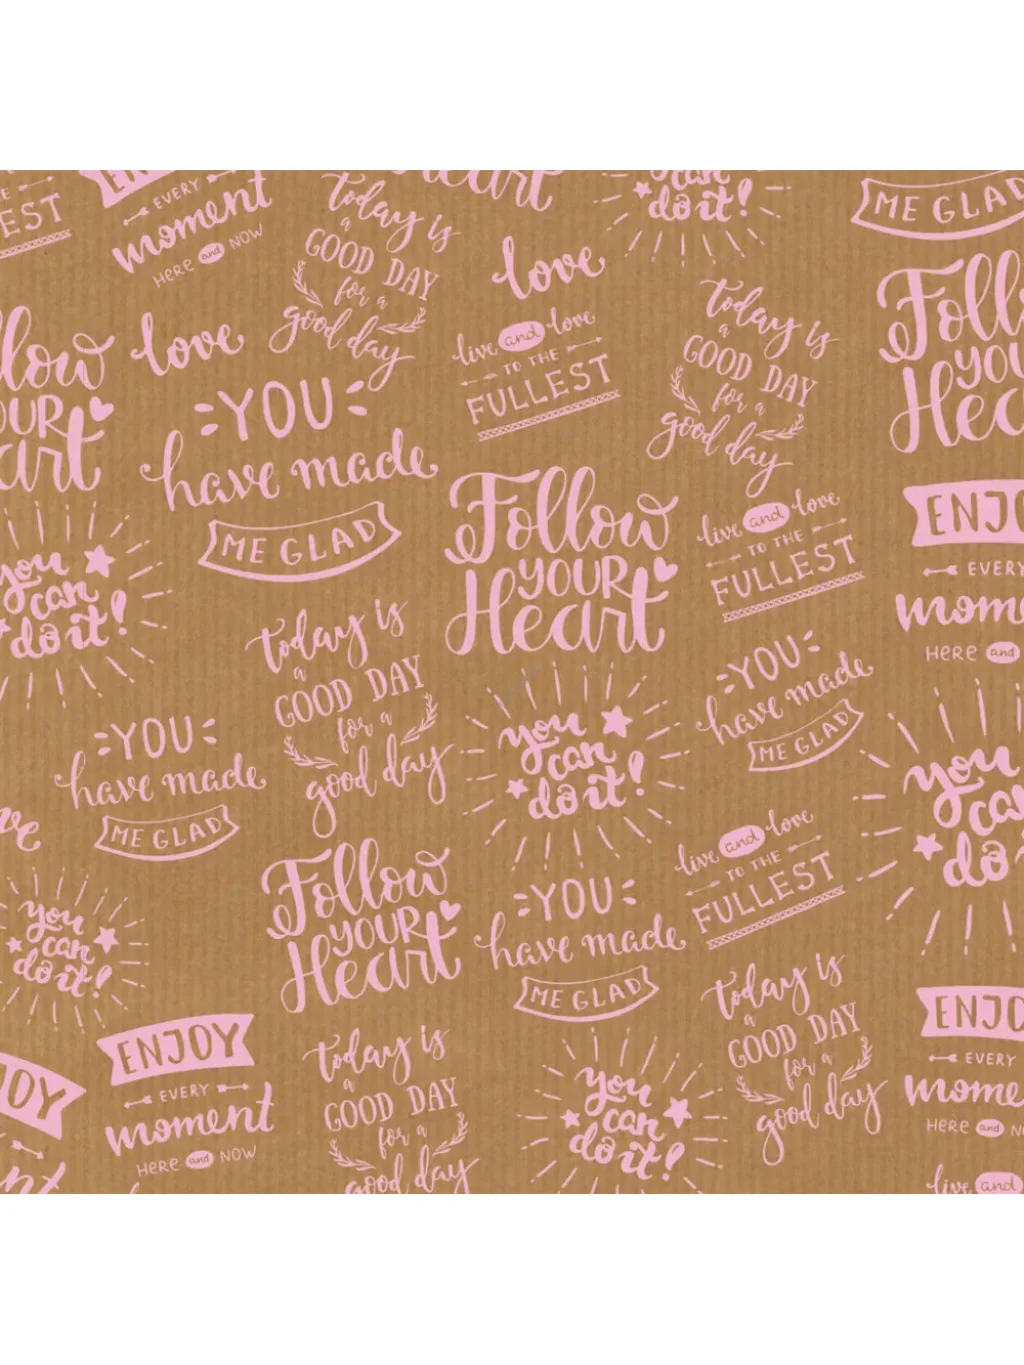 ENJOY
EVERY
moment
HERE and NOW
FULLEST
today is
a
GOOD DAY
for a
good day
Heart
can
do it!
ME GLAD
love
live and love
TO THE
FULLEST
today is
a
GOOD DAY
for a
good day
Follow
YOUR
Heart
Follow
YOUR
Heart
love
YOU
have made
ME GLAD
Follow
YOUR
Heart
live and love
TO THE
FULLEST
ENJOY
EVERY
moment
HERE and
you
can
do it!
today is
a
GOOD DAY
for a
good day
you
can
do it!
YOU
have made
ME GLAD
YOU
have made
ME GLAD
you
can
do
Follow
YOUR
Heart
YOU
have made
ME GLAD
live and love
TO THE
FULLEST
you
can
do it!
ENJOY
EVERY
moment
HERE and NOW
today is
a
GOOD DAY
for a
good day
you
can
do it!
today is
a
GOOD DAY
for a
good day
ENJOY
EVERY
moment
HERE and NOW
live and